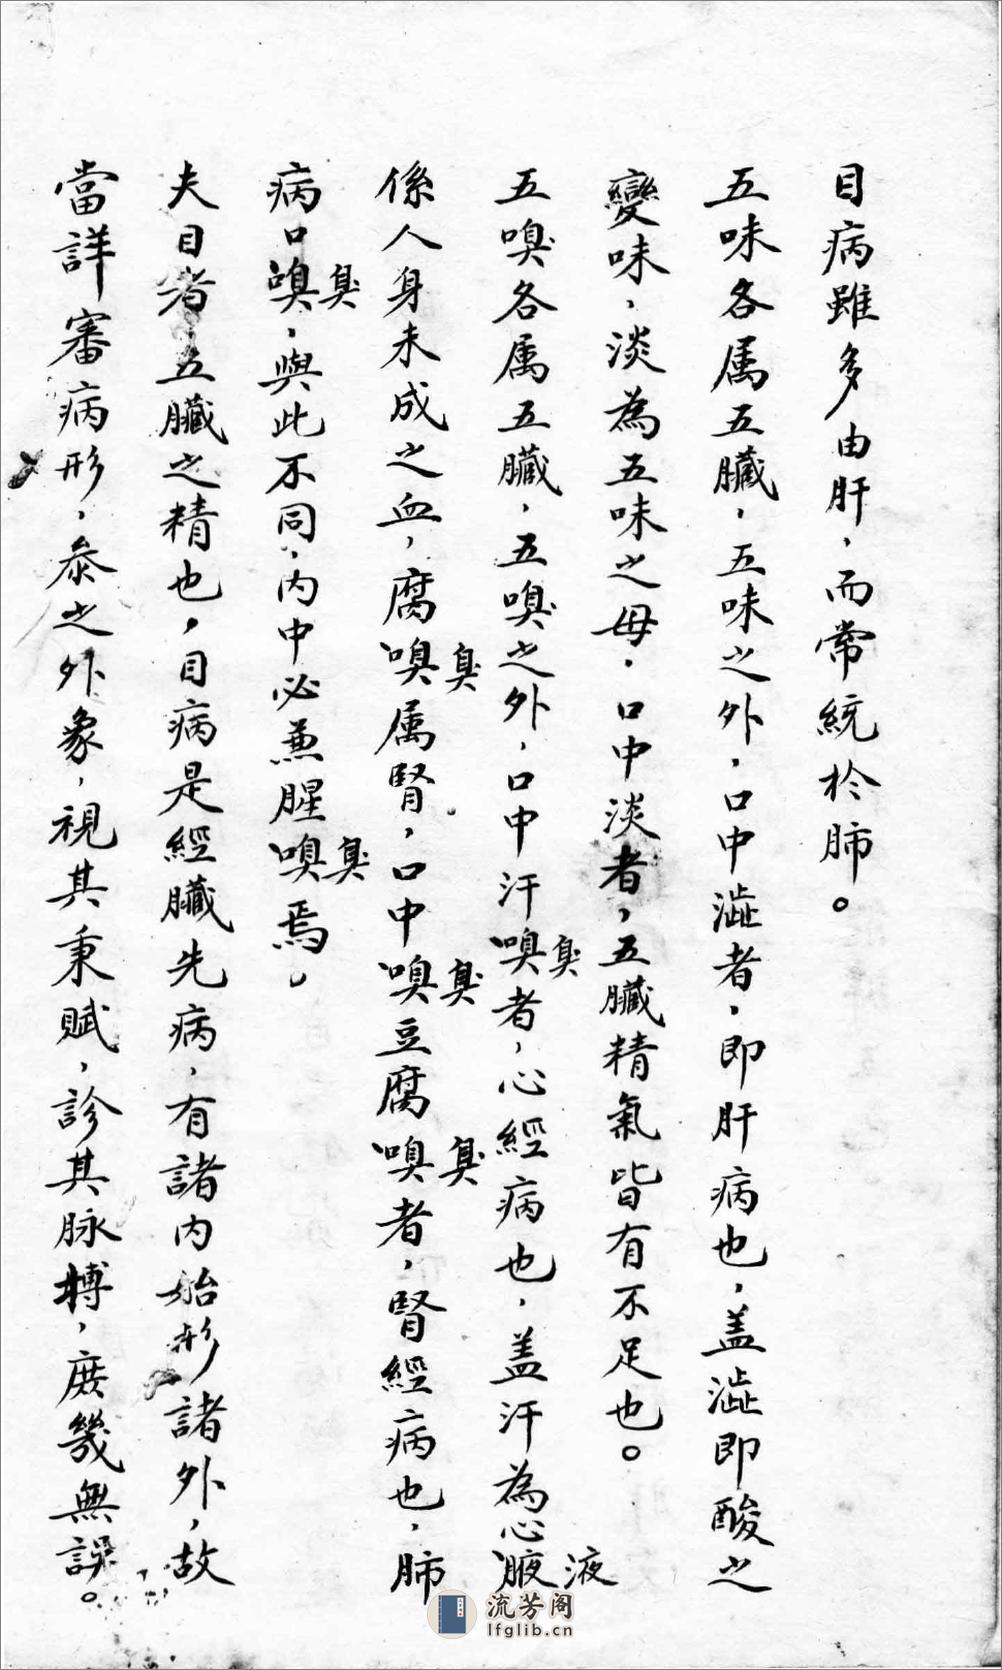 目病雖多由肝，而常統於肺。
五味各属五臟，五味之外，口中澁者，即肝病也，盖澁即酸之
變味，淡為五味之母，口中淡者，五臟精氣皆有不足也。
五嗅各属五臟，五嗅之外，口中汗嗅臭者，心經病也，盖汗為心腋液
係人身未成之血，腐嗅臭属腎，口中嗅臭豆腐嗅臭者，腎經病也，肺
病口嗅臭，與此不同，内中必兼腥嗅臭焉。
夫目者，五臟之精也，目病是經臟先病，有諸内始形諸外，故
當詳審病形，叅之外象，視其秉賦，診其脉搏，庶幾無誤。
流芳阁
lfglib.cn